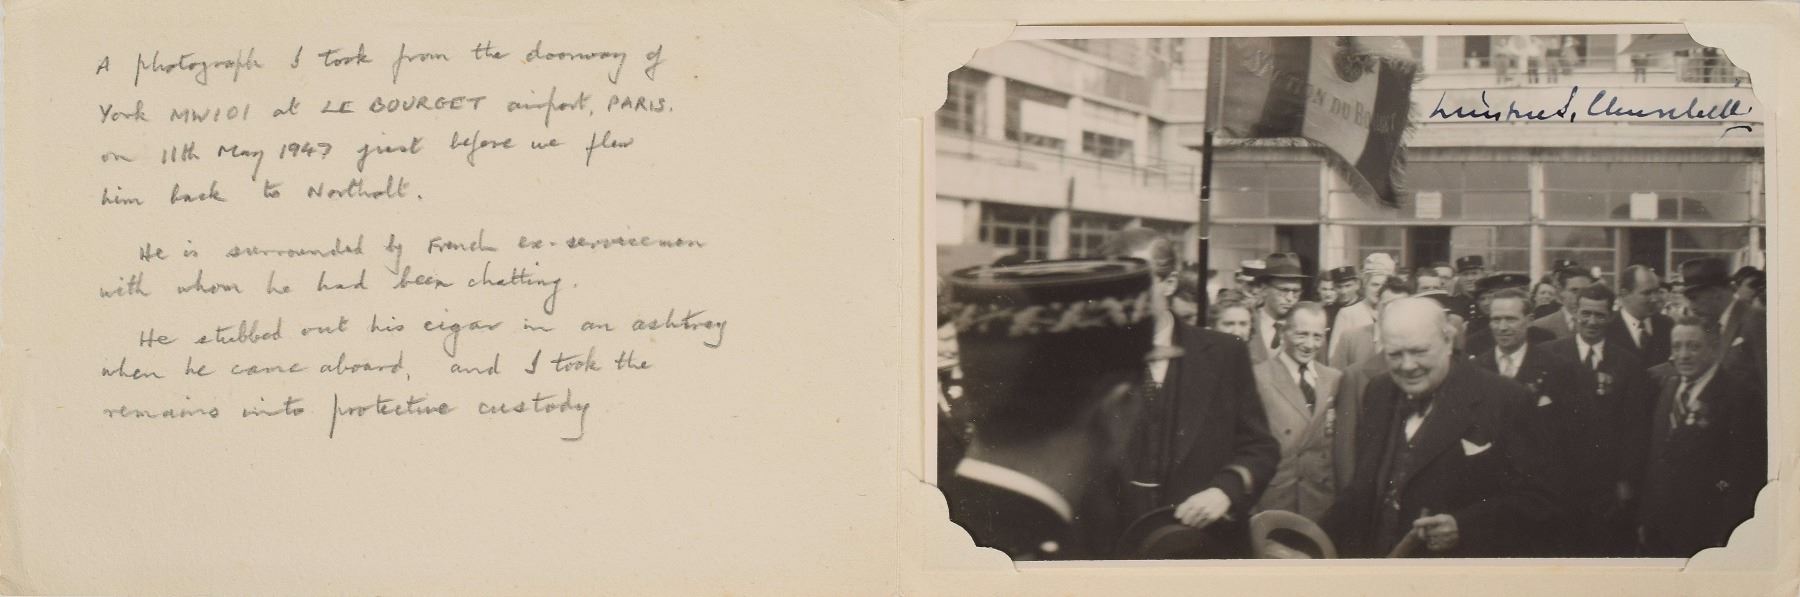 A photograph I took from the doorway of
York MW101 at LE BOURGET airport, PARIS.
on 11th May 1947 just before we flew
him back to Northolt.
He is surrounded by French ex-servicemen
with whom he had been chatting.
He stubbed out his cigar in an ashtray
when he came aboard, and I took the
remains into protective custody
SECTION DU BOURGET
Winston S. Churchill